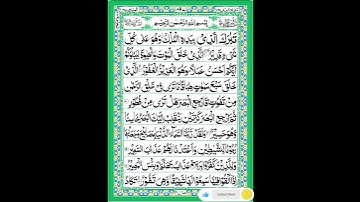 بِسْمِ اللهِ الرَّحْمٰنِ الرَّحِيْمِ
تَبٰرَكَ الَّذِيْ بِيَدِهِ الْمُلْكُ وَهُوَ عَلٰى كُلِّ
شَيْءٍ قَدِيْرُ الَّذِيْ خَلَقَ الْمَوْتَ وَالْحَيٰوةَ لِيَبْلُوَكُمْ
اَيُّكُمْ اَحْسَنُ عَمَلًا وَهُوَ الْعَزِيْزُ الْغَفُوْرُ الَّذِيْ
خَلَقَ سَبْعَ سَمٰوٰتٍ طِبَاقًا مَا تَرٰى فِيْ خَلْقِ الرَّحْمٰنِ
مِنْ تَفٰوُتٍ فَارْجِعِ الْبَصَرَ هَلْ تَرٰى مِنْ فُطُوْرٍ
ثُمَّ ارْجِعِ الْبَصَرَ كَرَّتَيْنِ يَنْقَلِبْ اِلَيْكَ الْبَصَرُ خَاسِئًا
وَهُوَ حَسِيْرٌ وَلَقَدْ زَيَّنَّا السَّمَآءَ الدُّنْيَا بِمَصَابِيْحَ وَجَعَلْنٰهَا
رُجُوْمًا لِّلشَّيٰطِيْنِ وَاَعْتَدْنَا لَهُمْ عَذَابَ السَّعِيْرِ
وَلِلَّذِيْنَ كَفَرُوْا بِرَبِّهِمْ عَذَابُ جَهَنَّمَ وَبِئْسَ الْمَصِيْرُ
اِذَآ اُلْقُوْا فِيْهَا سَمِعُوْا لَهَا شَهِيْقًا وَّهِيَ تَفُوْرُ تَكَادُ